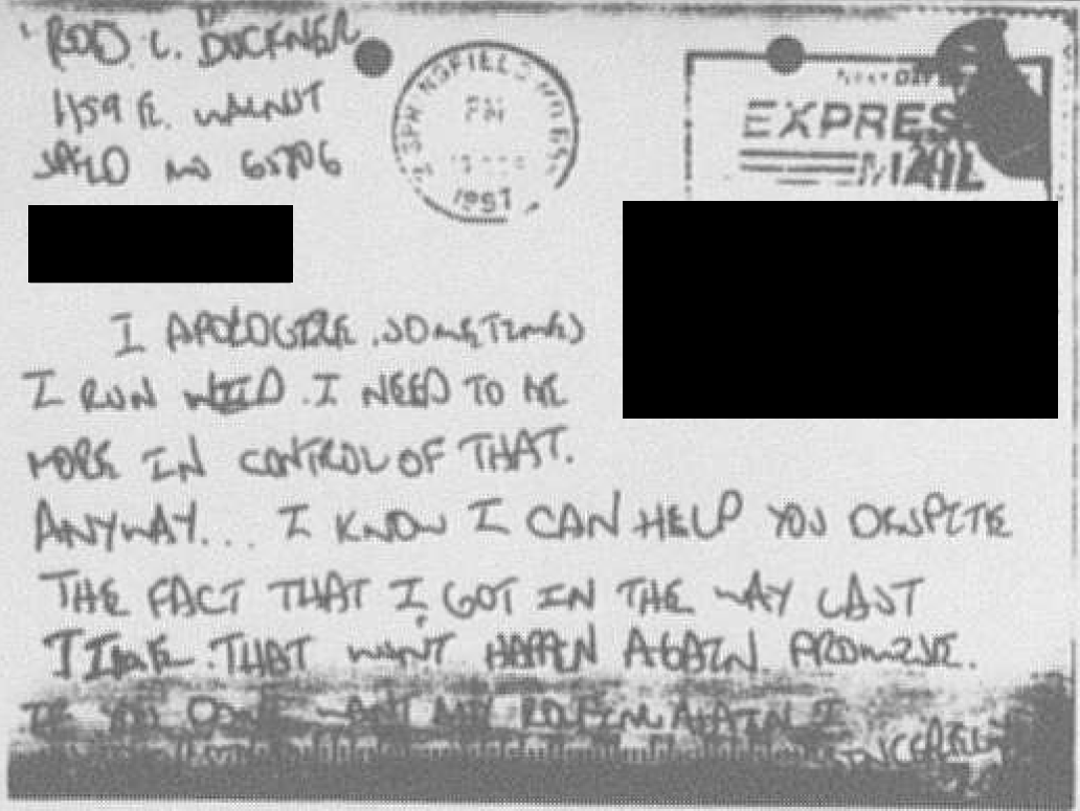 ROD L. DUCKNER
1159 E. WALNUT
SPFLD MO 65806
SPRINGFIELD MO
PM
1997
NEXT DAY
EXPRESS
MAIL
I APOLOGIZE. SOMETIMES
I RUN WILD. I NEED TO BE
MORE IN CONTROL OF THAT.
ANYWAY... I KNOW I CAN HELP YOU DESPITE
THE FACT THAT I GOT IN THE WAY LAST
TIME. THAT WON'T HAPPEN AGAIN. PROMISE.
IF YOU DON'T WANT MY AGAIN I
SINCERELY